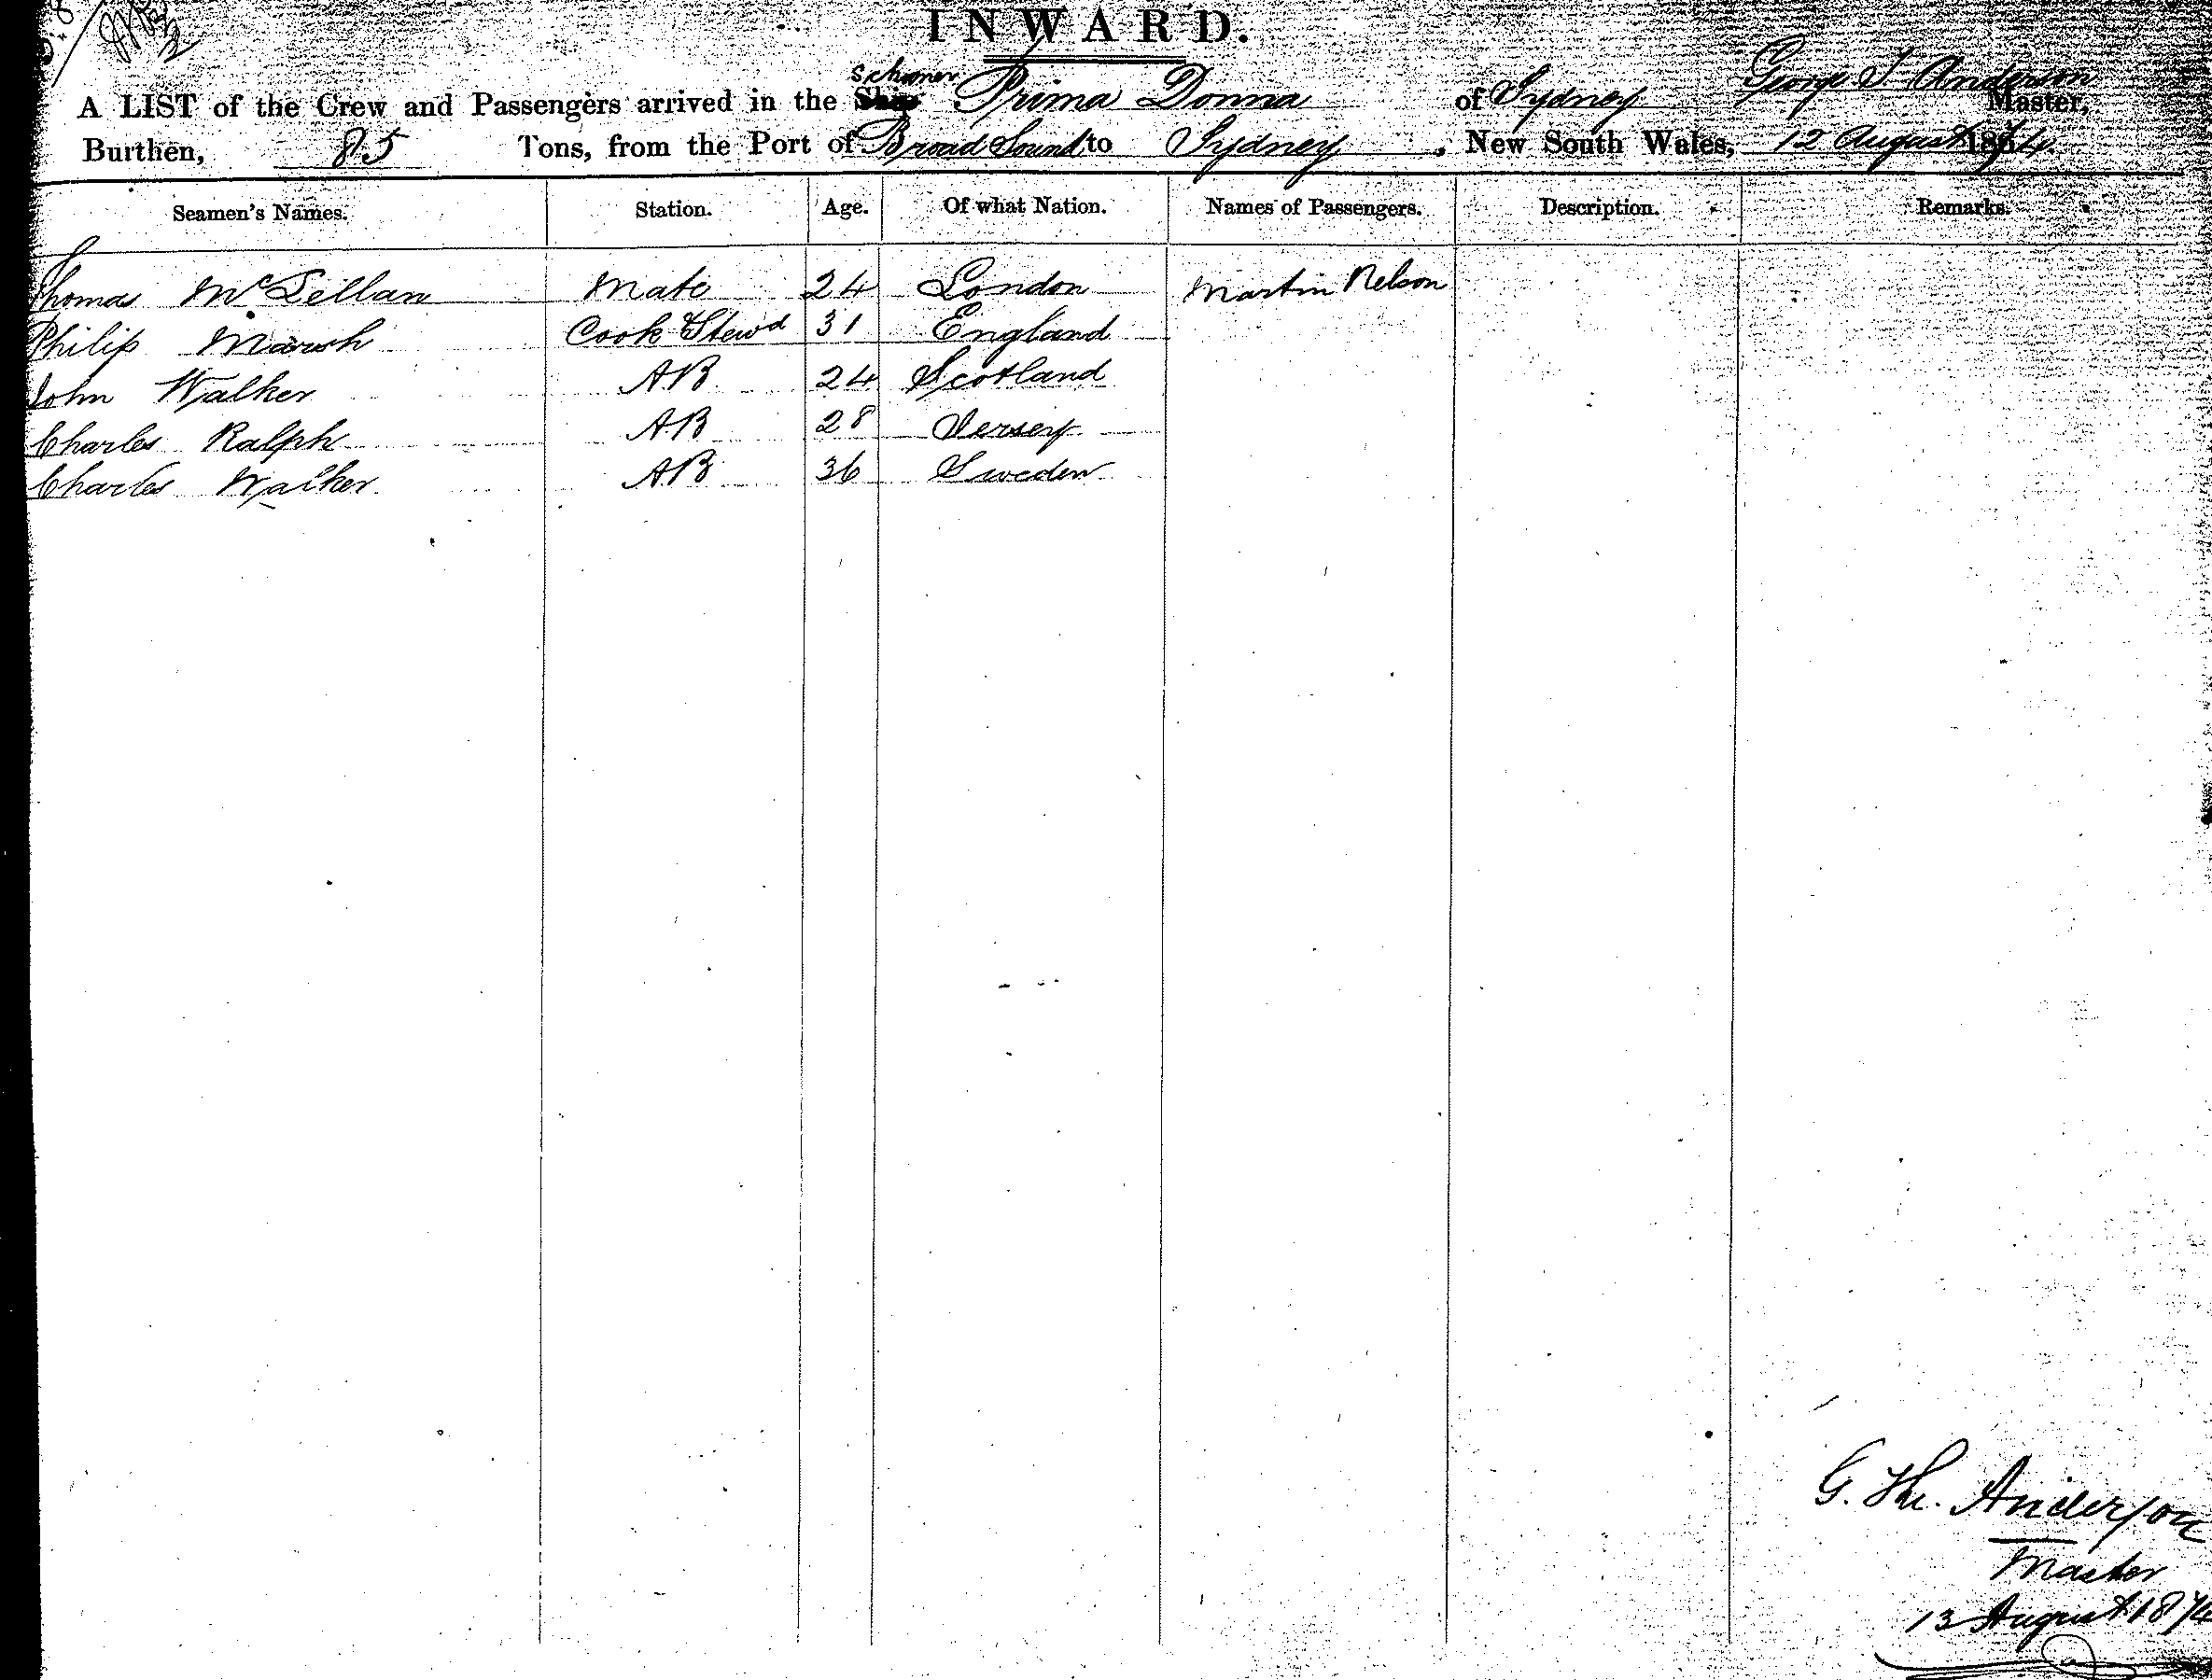 INWARD.
Schoner
A LIST of the Crew and Passengers arrived in the Ship Prima Donna of Sydney George T. Anderson Master,
Burthen, 85 Tons, from the Port of Broad Sound to Sydney, New South Wales, 12 August 1874
Seamen's Names. Station. Age. Of what Nation. Names of Passengers. Description. Remarks.
Thomas McLellan Mate 24 London Martin Nelson
Philip Marsh Cook Stewd 31 England
John Walker AB 24 Scotland
Charles Ralph AB 28 Jersey
Charles Walker AB 36 Sweden
G. Th. Anderson
Master
13 August 1874